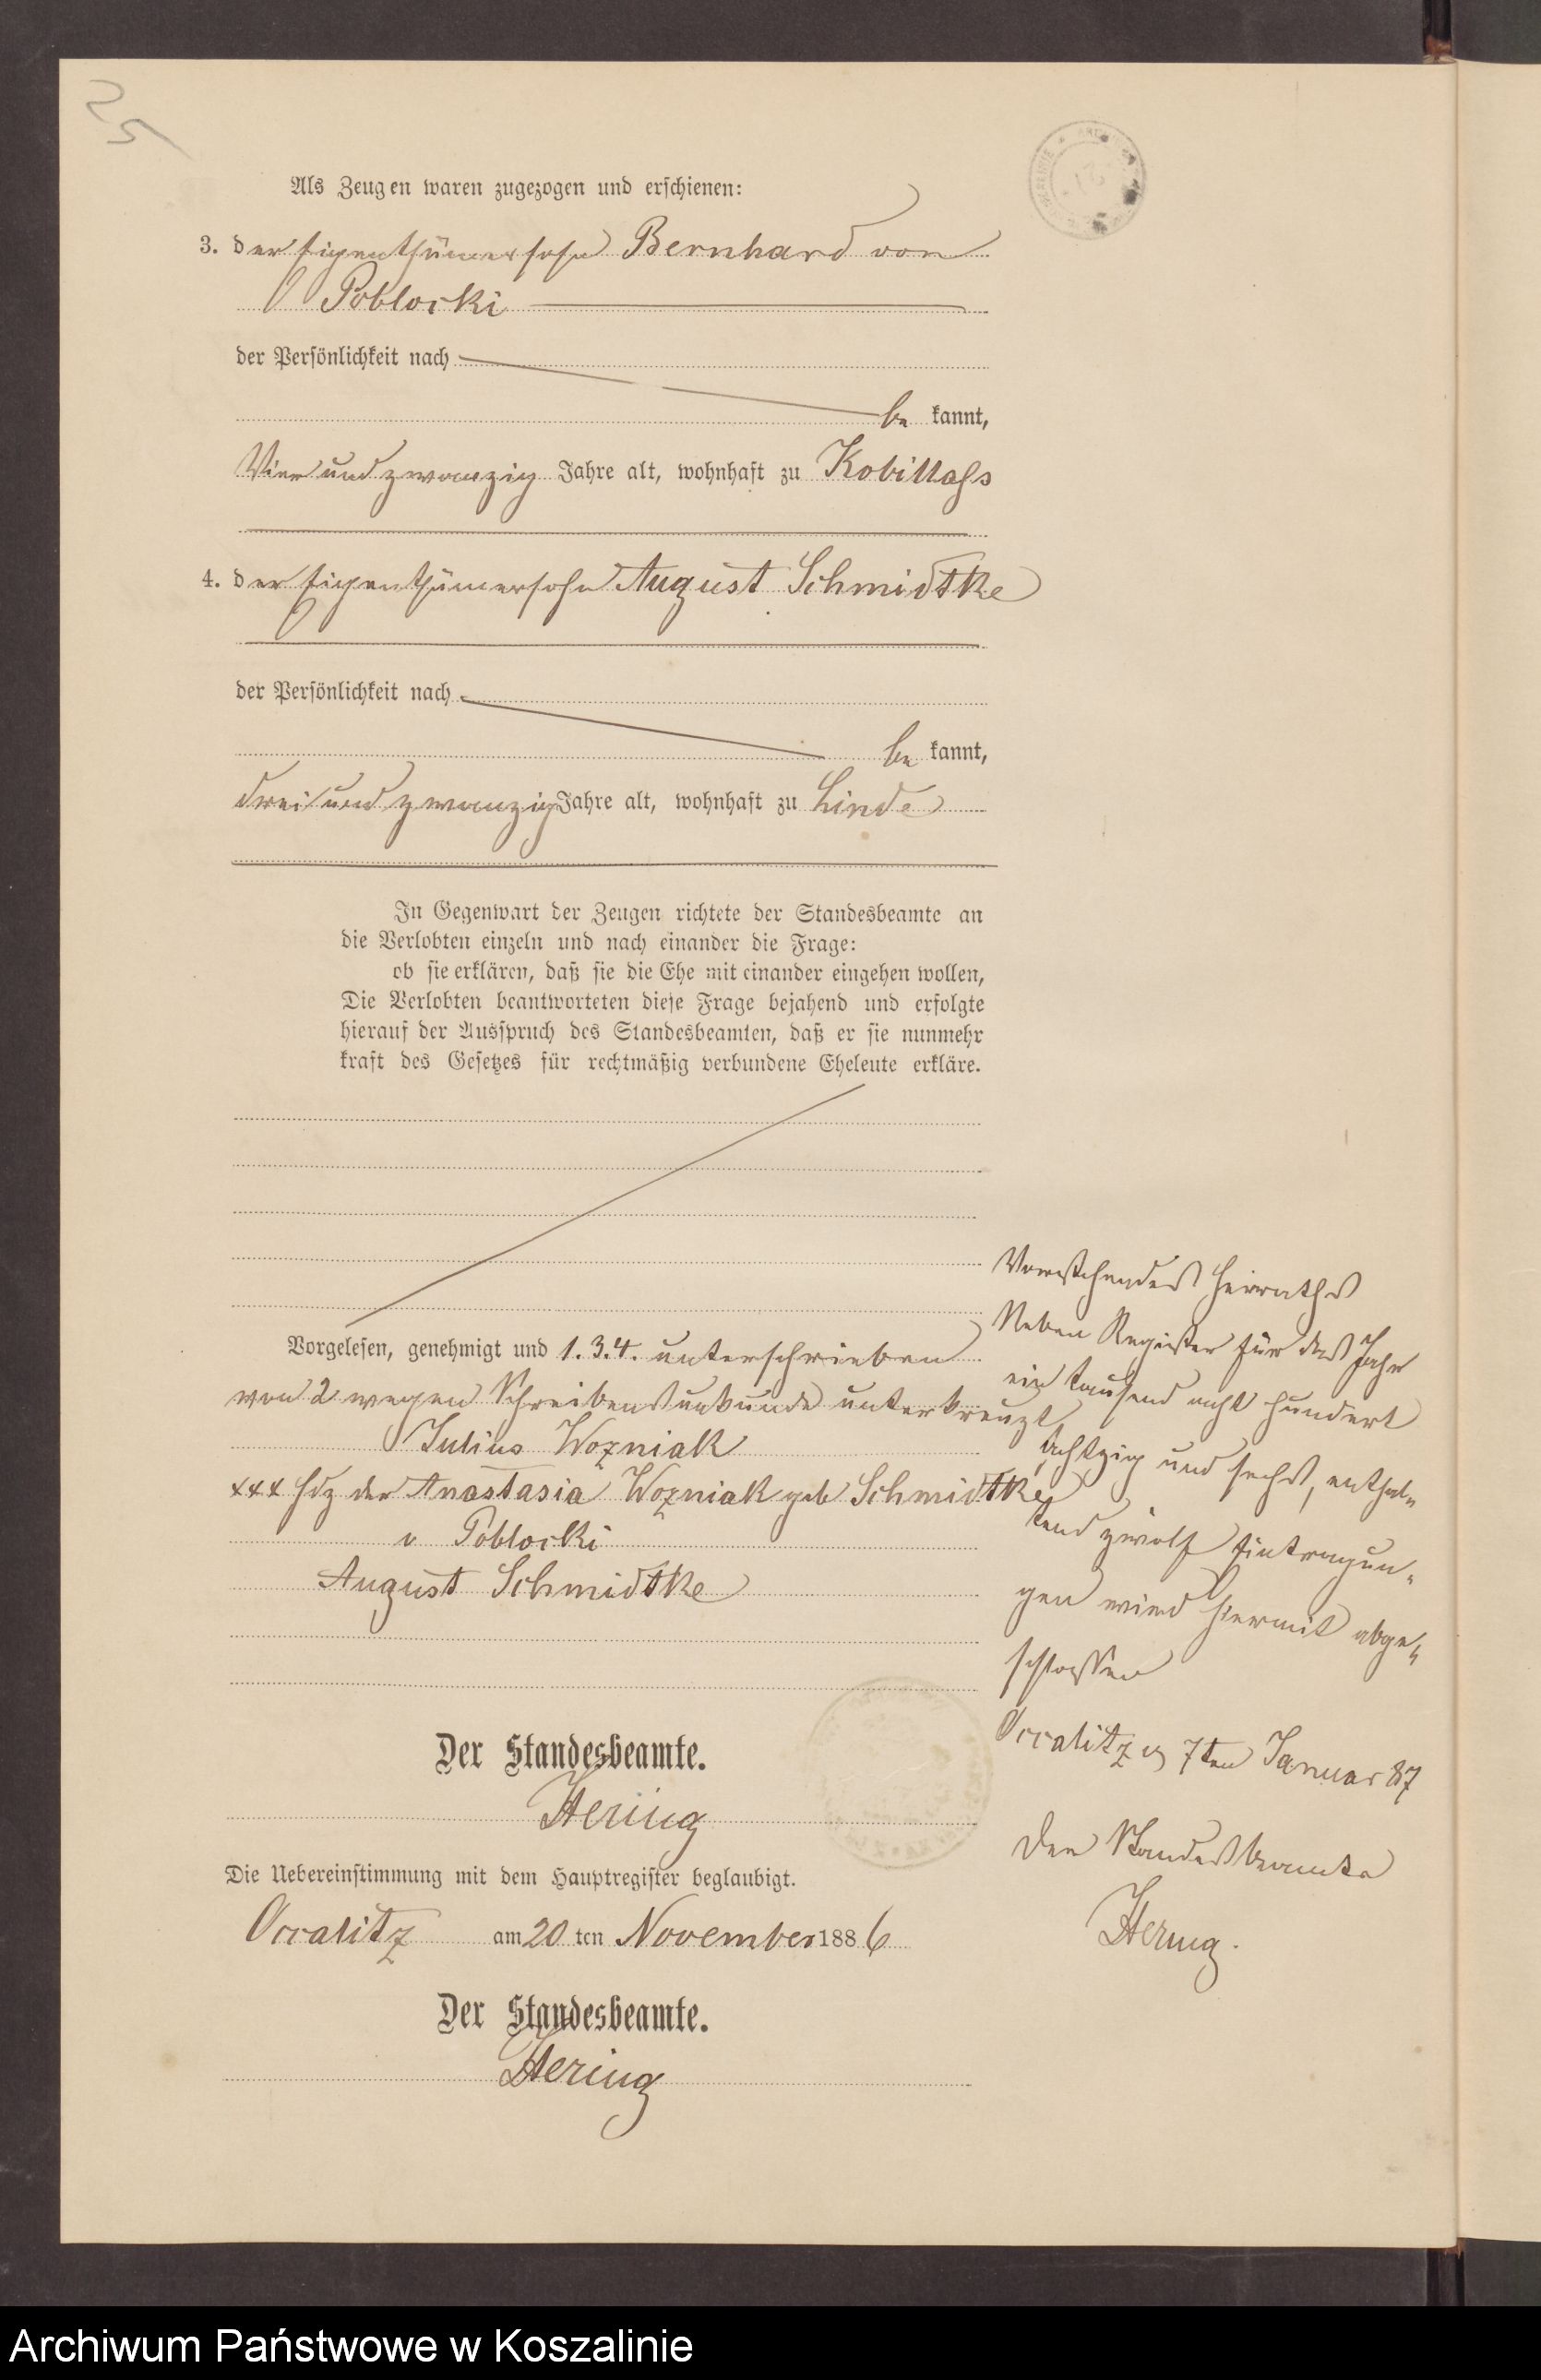 25
Als Zeugen waren zugezogen und erschienen:
3. der Eigenthümersohn Bernhard von
Poblocki
der Persönlichkeit nach
be kannt,
Vier und zwanzig Jahre alt, wohnhaft zu Kobillass
4. der Eigenthümersohn August Schmidtke
der Persönlichkeit nach
be kannt,
drei und zwanzig Jahre alt, wohnhaft zu Linde
In Gegenwart der Zeugen richtete der Standesbeamte an
die Verlobten einzeln und nach einander die Frage:
ob sie erklären, daß sie die Ehe mit einander eingehen wollen,
Die Verlobten beantworteten diese Frage bejahend und erfolgte
hierauf der Ausspruch des Standesbeamten, daß er sie nunmehr
kraft des Gesetzes für rechtmäßig verbundene Eheleute erkläre.
Vorgelesen, genehmigt und 1. 3. 4. unterschrieben
von 2 wegen Schreibensunkunde unterkreuzt
Julius Wozniak
+++ Hdz der Anastasia Wozniak geb Schmidtke
v Poblocki
August Schmidtke
Der Standesbeamte.
Hering
Die Uebereinstimmung mit dem Hauptregister beglaubigt.
Occalitz am 20 ten November 1886
Der Standesbeamte.
Hering
Vorstehendes Heiraths
Neben Register für das Jahr
ein tausend acht hundert
achtzig und sechs, enthal-
tend zwölf Eintragun-
gen wird hiermit abge-
schlossen
Occalitz 7ten Januar 87
Der Standesbeamte
Hering.
Archiwum Państwowe w Koszalinie